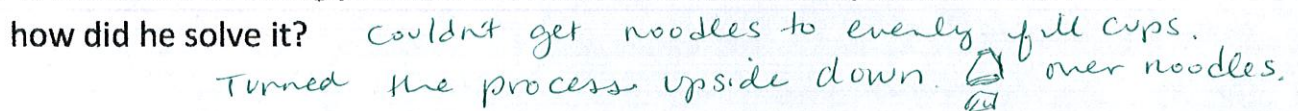 how did he solve it? Couldn't get noodles to evenly fill cups.
Turned the process upside down. over noodles.